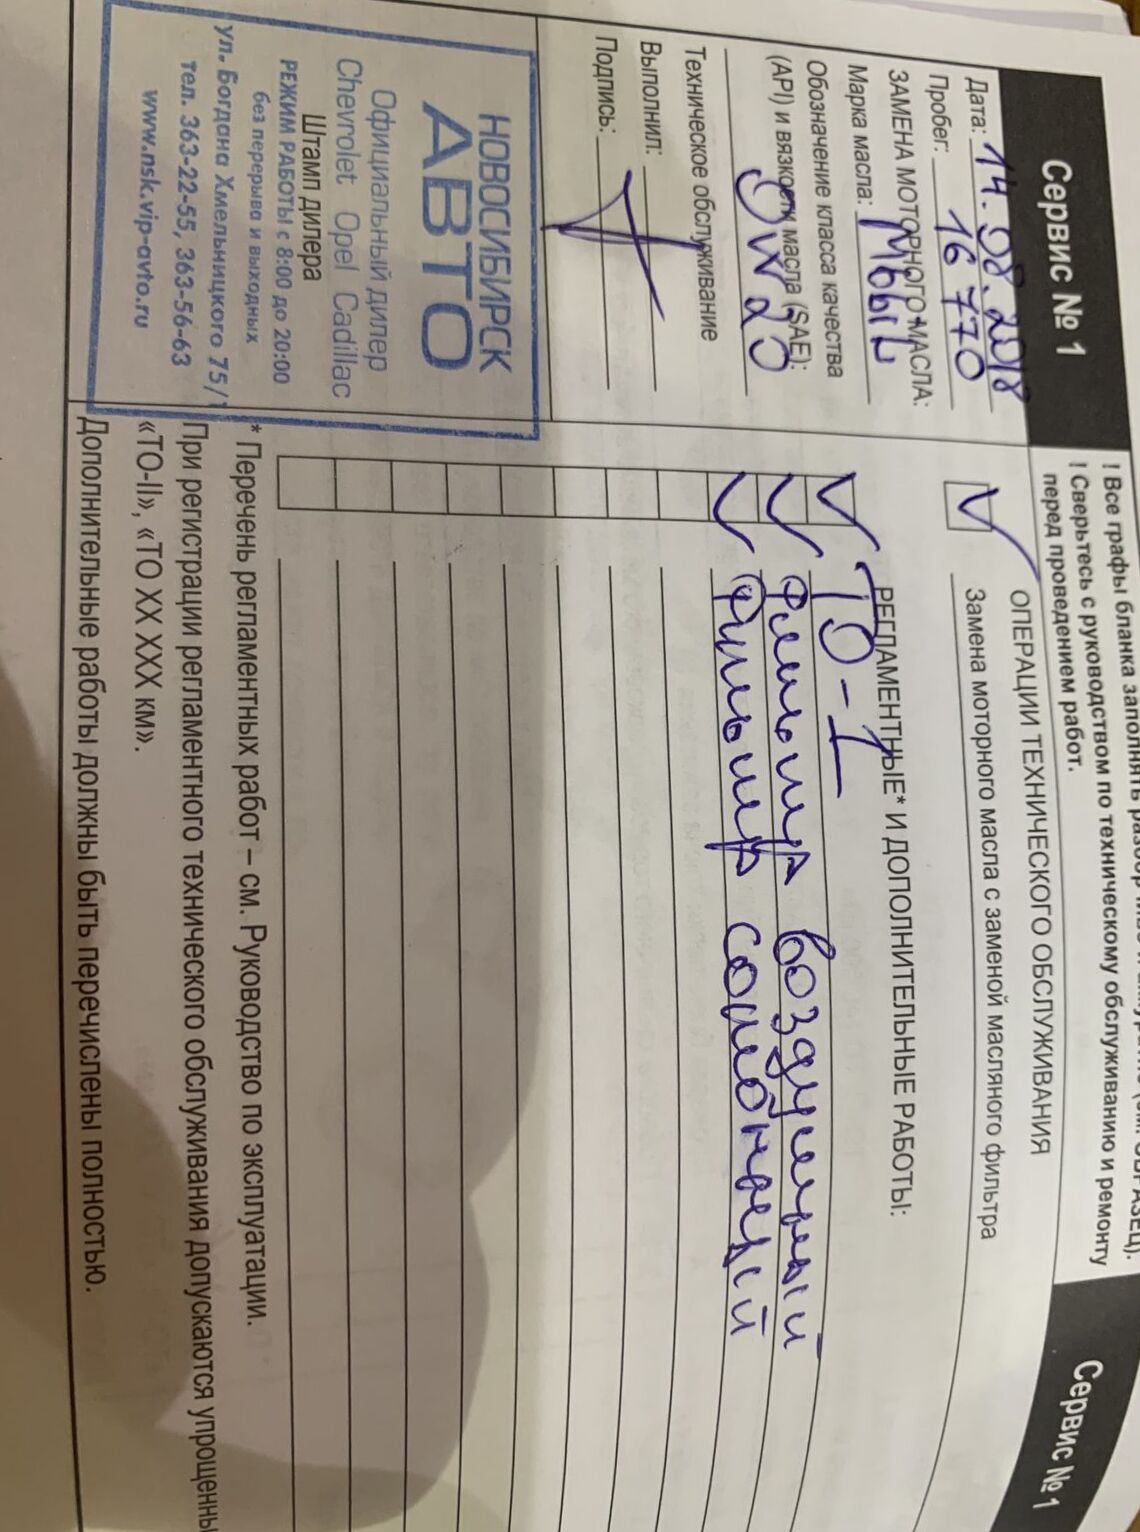 Сервис № 1
Дата: 14.08.2018
Пробег: 16 770
ЗАМЕНА МОТОРНОГО МАСЛА:
Марка масла: Мобил
Обозначение класса качества
(API) и вязкости масла (SAE):
0w20
Техническое обслуживание
Выполнил:
Подпись:
НОВОСИБИРСК
АВТО
Официальный дилер
Chevrolet Opel Cadillac
Штамп дилера
РЕЖИМ РАБОТЫ с 8:00 до 20:00
без перерыва и выходных
ул. Богдана Хмельницкого 75/1
тел. 363-22-55, 363-56-63
www.nsk.vip-avto.ru
! Все графы бланка заполнять
! Сверьтесь с руководством по техническому обслуживанию и ремонту
перед проведением работ.
ОПЕРАЦИИ ТЕХНИЧЕСКОГО ОБСЛУЖИВАНИЯ
Замена моторного масла с заменой масляного фильтра
РЕГЛАМЕНТНЫЕ* И ДОПОЛНИТЕЛЬНЫЕ РАБОТЫ:
ТО-1
фильтр воздушный
фильтр салонный
* Перечень регламентных работ – см. Руководство по эксплуатации.
При регистрации регламентного технического обслуживания допускаются упрощенны
«ТО-II», «ТО XX XXX км».
Дополнительные работы должны быть перечислены полностью.
Сервис № 1